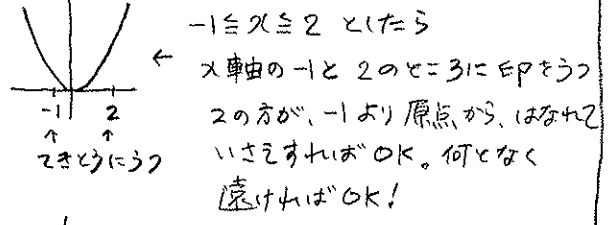 -1≦x≦2 としたら
x軸の-1と2のところに印をうつ
2の方が、-1より原点から、はなれて
いさえすればOK。何となく
遠ければOK!
←
-1 2
↑ ↑
てきとうにうつ